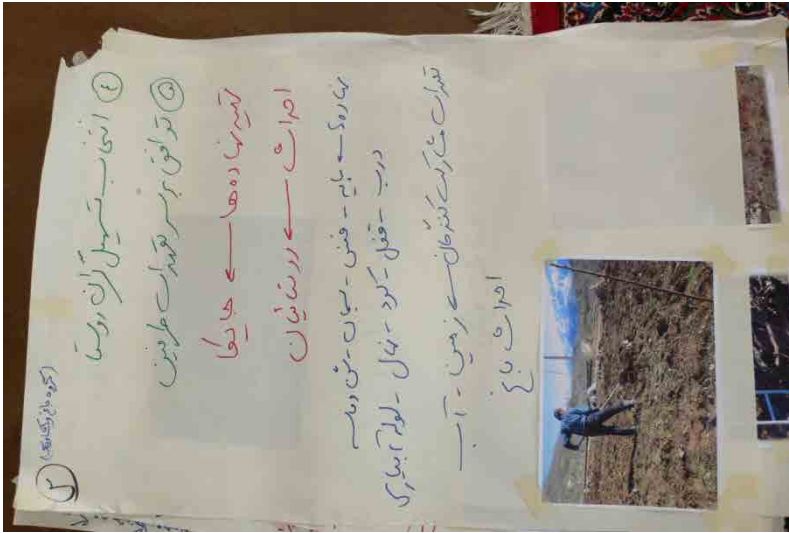 ۲
(گروه باغ و کشاورزی)
④ انتخاب تسهیل‌گران روستا
⑤ توافق بر سر تعهدات طرفین
تهیه نهاده‌ها ← جایکا
احداث ← روستائیان
نهاده‌ها ← پایه - فنس - سیمان - شن و ماسه
درب - قفل - کود - نهال - لوله آبیاری
تعهدات مشارکت کنندگان ← زمین - آب
احداث باغ